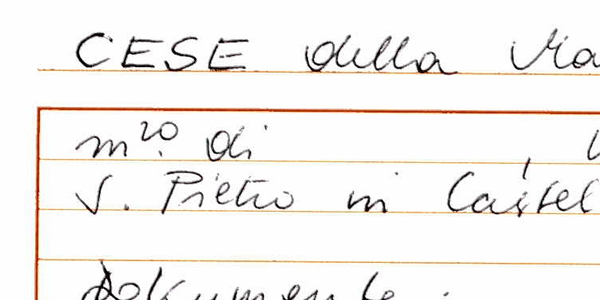 CESE della
m.ro di ,
S. Pietro in Castel
Dokumente: